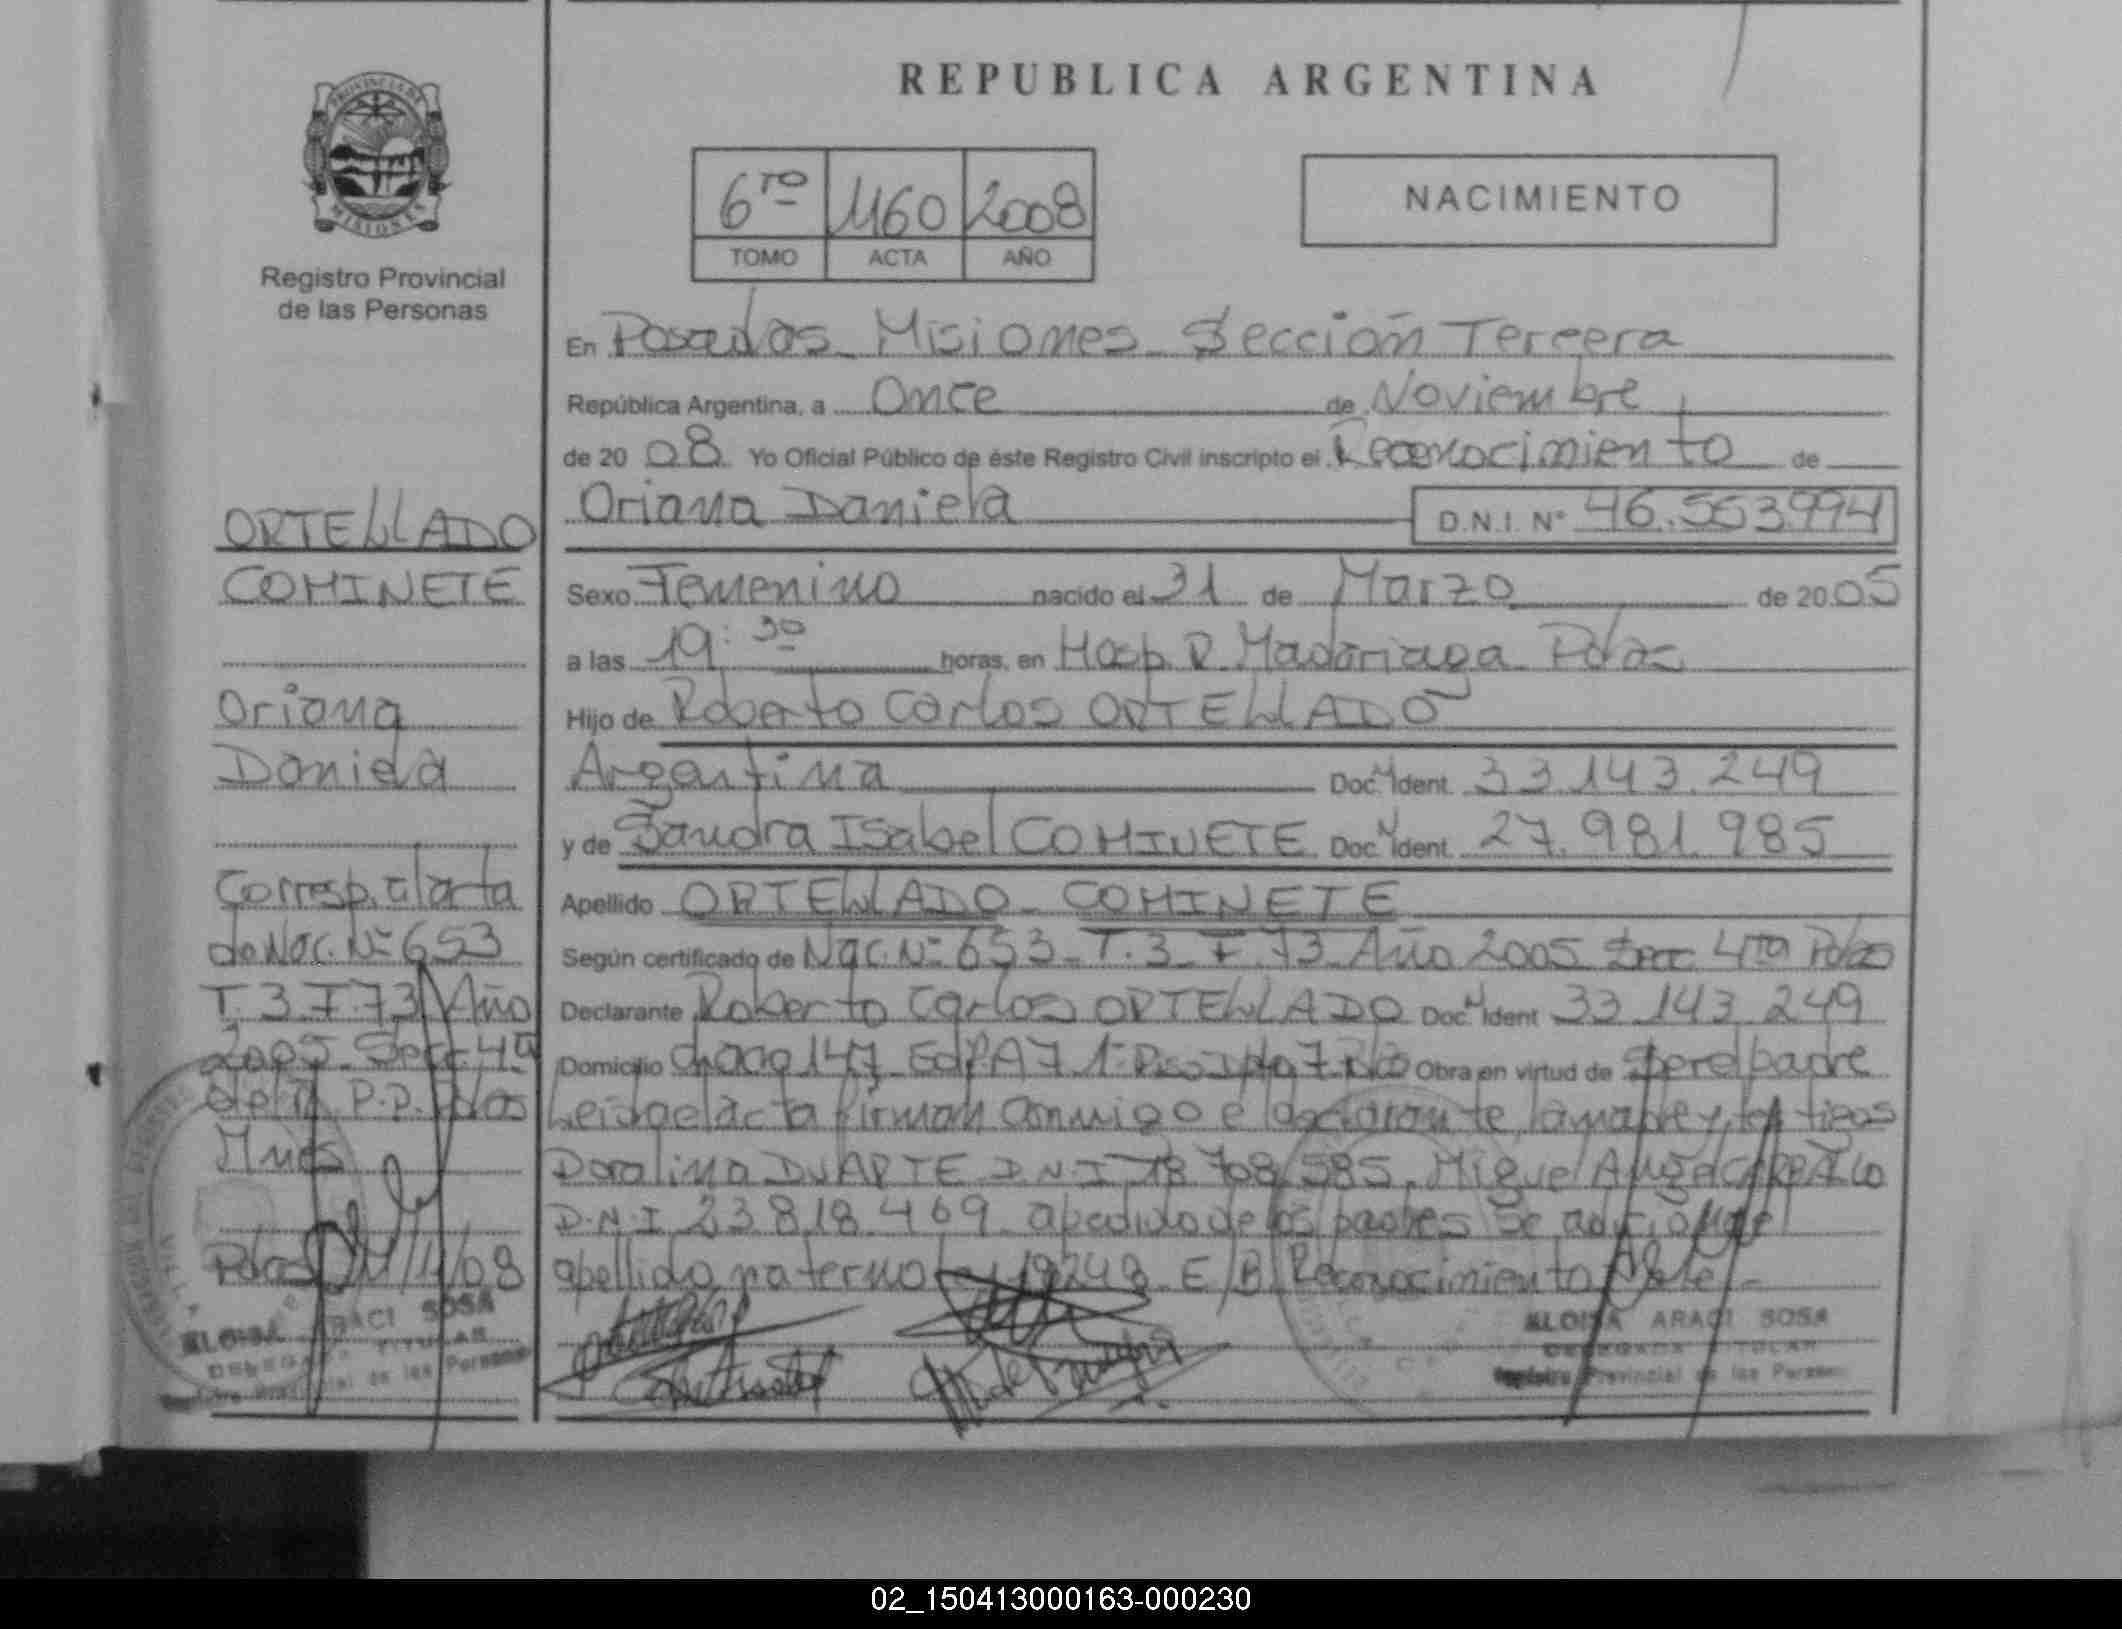 REPUBLICA ARGENTINA
PROVINCIA DE
MISIONES
Registro Provincial
de las Personas
6TO 1160 2008
TOMO ACTA AÑO
NACIMIENTO
En Posadas Misiones Sección Tercera
República Argentina, a Once de Noviembre
de 2008 Yo Oficial Público de éste Registro Civil inscripto el Reconocimiento de
Oriana Daniela D.N.I. Nº 46.553.994
Sexo Femenino nacido el 31 de Marzo de 2005
a las 19:30 horas, en Hosp. R. Madariaga Pdas
Hijo de Roberto Carlos ORTELLADO
Argentina Doc. Ident. 33.143.249
y de Sandra Isabel COMINETE Doc. Ident. 27.981.985
Apellido ORTELLADO COMINETE
Según certificado de Nac. Nº 653 T.3 F.73 Año 2005 Secc 4ta Pdas
Declarante Roberto Carlos ORTELLADO Doc. Ident 33 143 249
Domicilio Chaco 147 Edf. A7 1º Piso Dto 7 Pdas Obra en virtud de Ser el padre
Leida el acta firman conmigo el declarante, la madre y los tigos
Doralina DUARTE D.N.I 18 708 585, Miguel
D.N.I 23 818 469 a pedido de los padres se adiciona el
apellido materno Ley 18248 E/B Reconocimiento Vale
ORTELLADO
COMINETE
Oriana
Daniela
Corresp. al acta
de Nac. Nº 653
T.3 F.73 Año
2005 Secc 4ª
P.D. Pdas
Mnes
Pdas 11/11/08
ELOISA ARACI SOSA
DELEGADA TITULAR
Registro Provincial de las Personas
ELOISA ARACI SOSA
DELEGADA TITULAR
Registro Provincial de las Personas
02_150413000163-000230